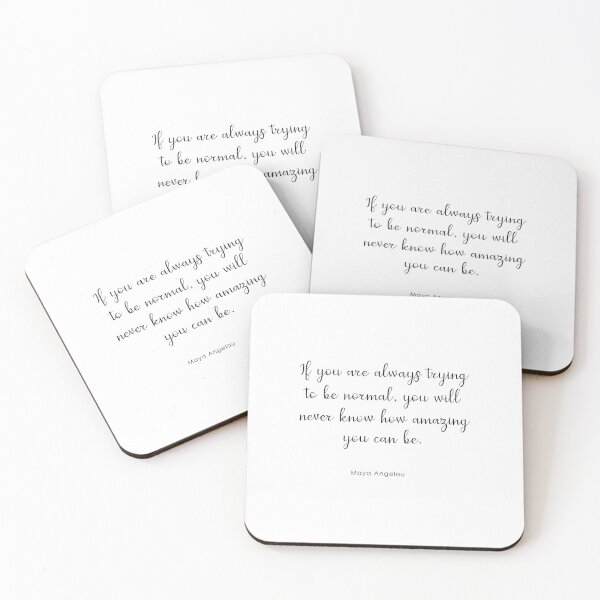 If you are always trying
to be normal, you will
never how amazing
If you are always trying
to be normal, you will
never know how amazing
you can be.
Maya
If you are always trying
to be normal, you will
never know how amazing
you can be.
Maya Angelou
If you are always trying
to be normal, you will
never know how amazing
you can be.
Maya Angelou